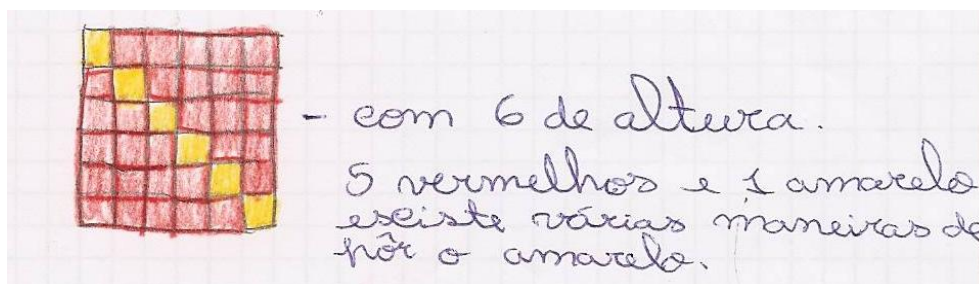 - com 6 de altura.
5 vermelhos e 1 amarelo
existe várias maneiras de
pôr o amarelo.